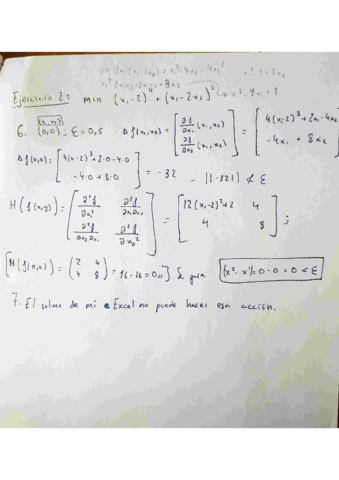 Ejercicio 2: min (x₁-2)⁴ + (x₁-2x₂)²
(x₁,x₂)
6. (0,0) ; ε = 0,5 Δf(x₁,x₂) = [ ∂f/∂x₁ (x₁,x₂) ; ∂f/∂x₂ (x₁,x₂) ] = [ 4(x₁-2)³+2x₁-4x₂ ; -4x₁ + 8x₂ ]
Δf(0,0) = [ 4(0-2)³+2·0-4·0 ; -4·0+8·0 ] = -32 ; ||-32|| ≮ ε
H(f(x,y)) = [ ∂²f/∂x₁² ∂²f/∂x₁∂x₂ ; ∂²f/∂x₂∂x₁ ∂²f/∂x₂² ] = [ 12(x₁-2)²+2 4 ; 4 8 ] ;
[H(f(0,0)) = ( 2 4 ; 4 8 ) = 16-16=0,,] Se para |x²-x¹|=0-0=0<ε
7. El solver de mi Excel no puede hacer esa acción.